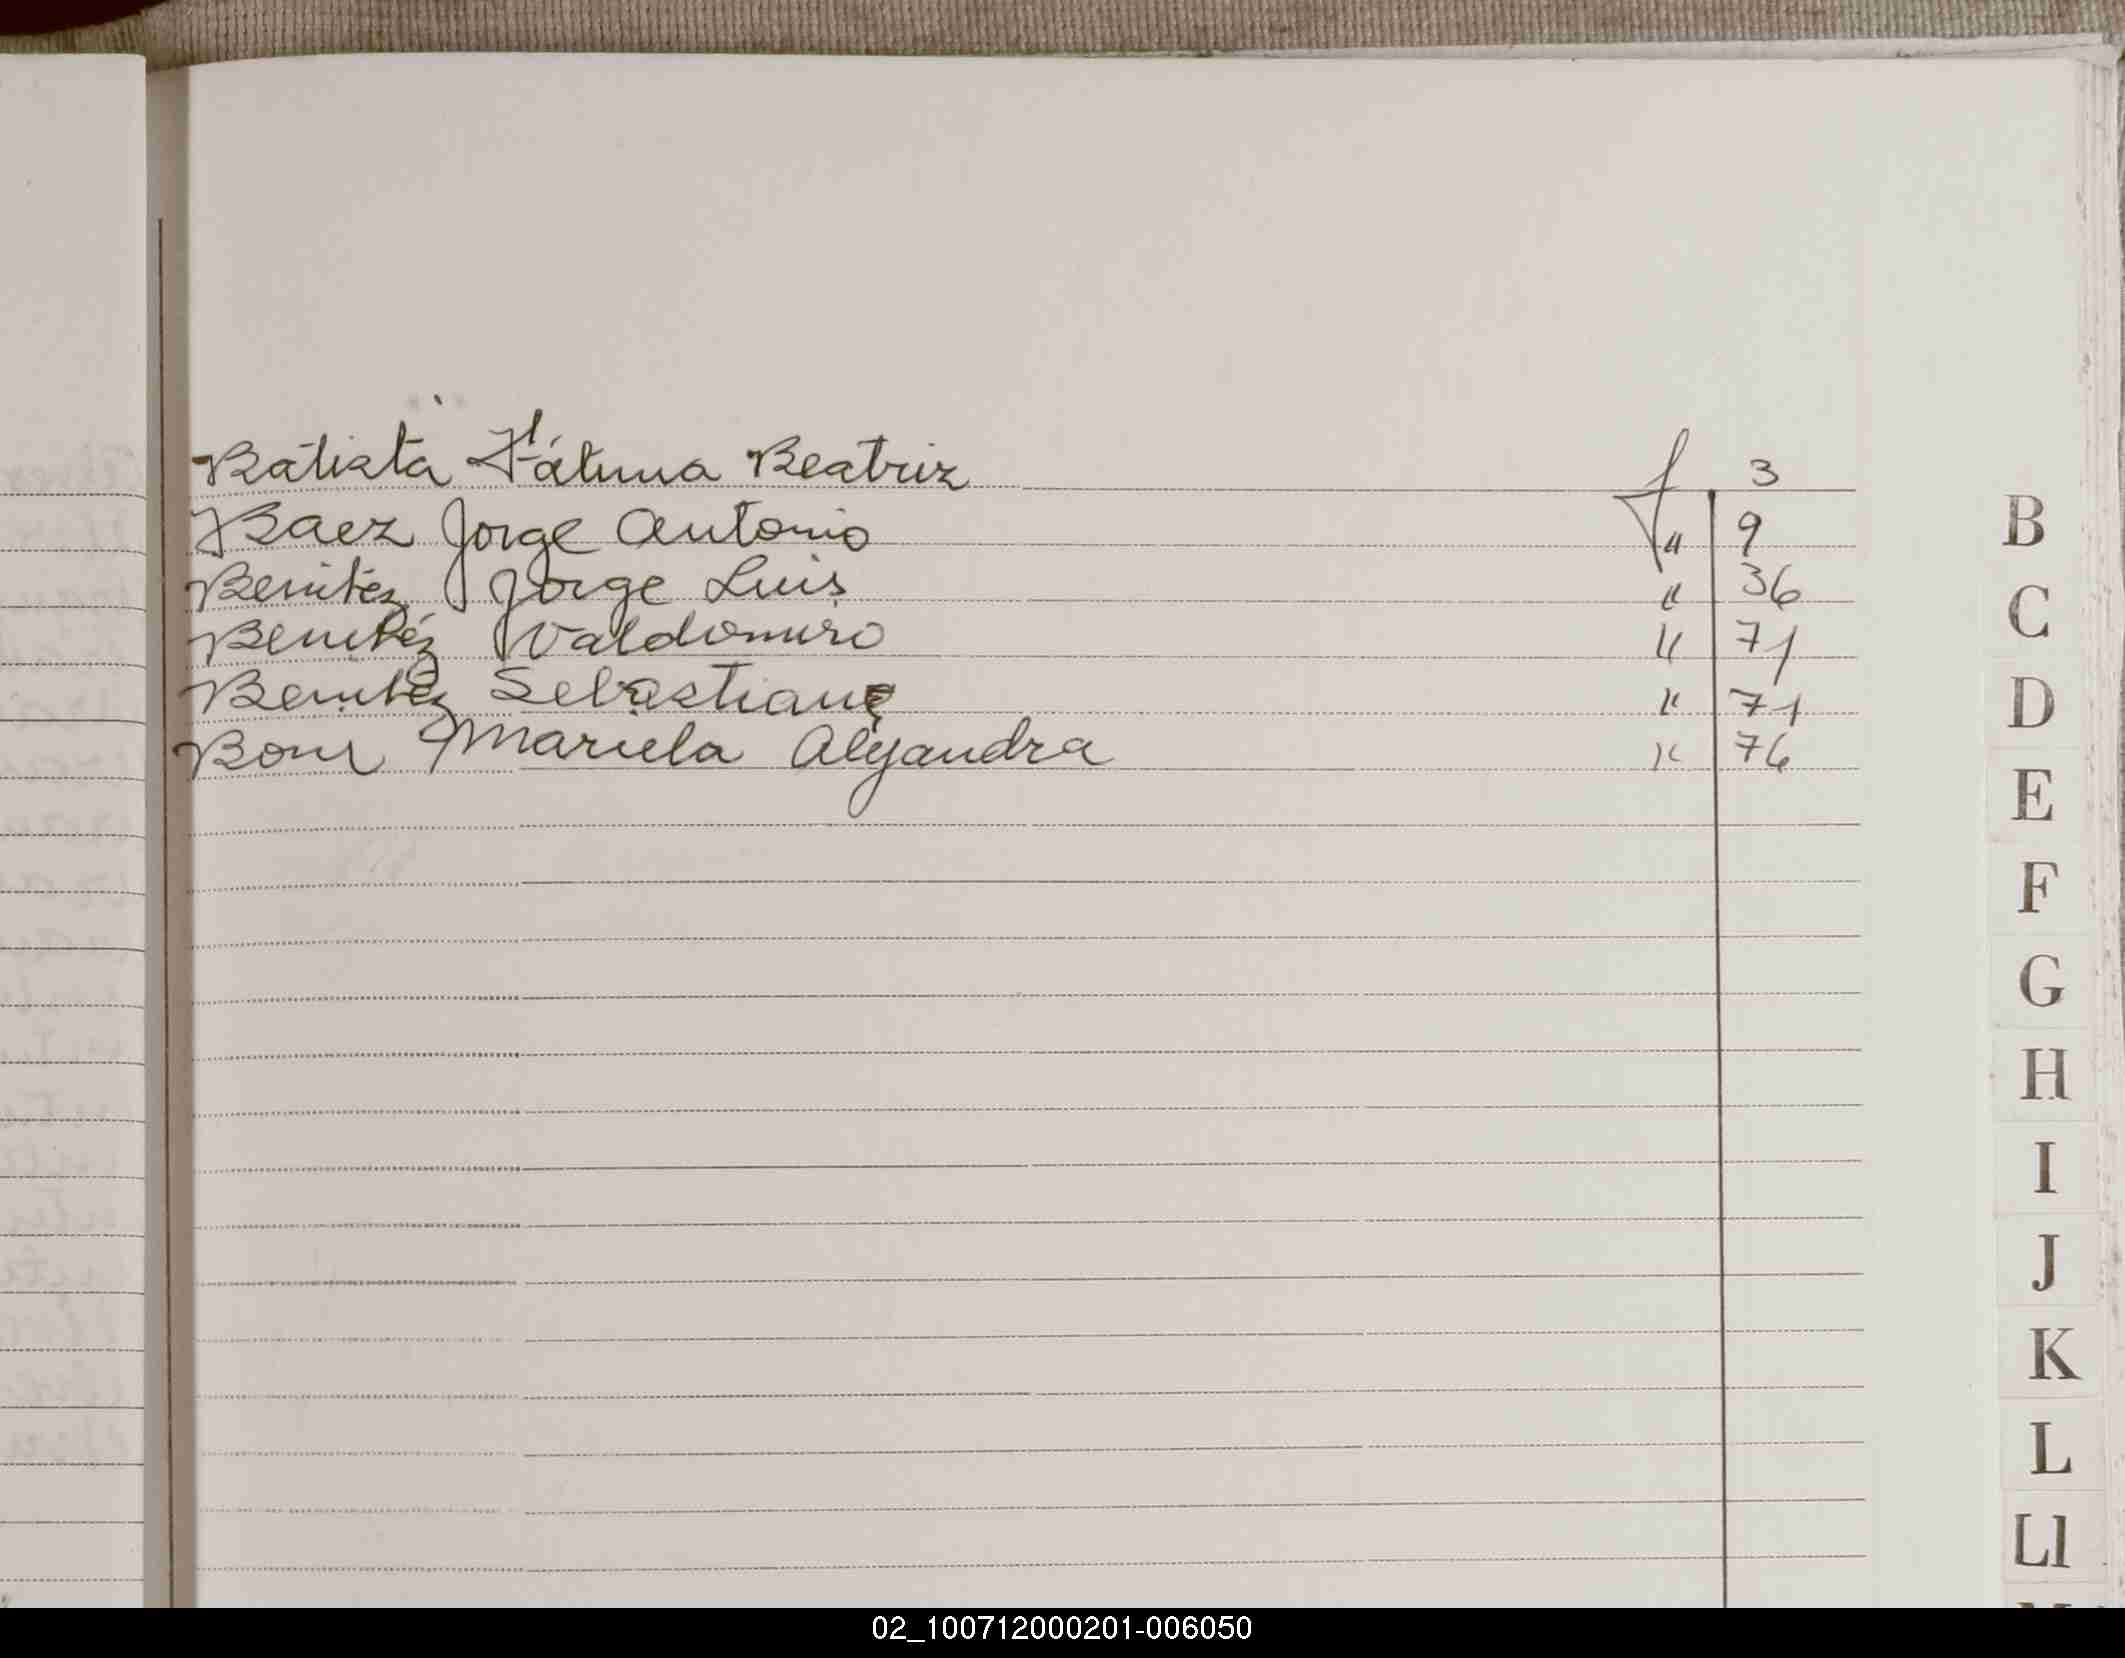 Batista Fátima Beatriz f 3
Baez Jorge Antonio " 9
Benitez Jorge Luis " 36
Benitéz Valdomiro " 71
Benitéz Sebastiane " 71
Bour Mariela Alejandra " 76
B
C
D
E
F
G
H
I
J
K
L
Ll
02_100712000201-006050